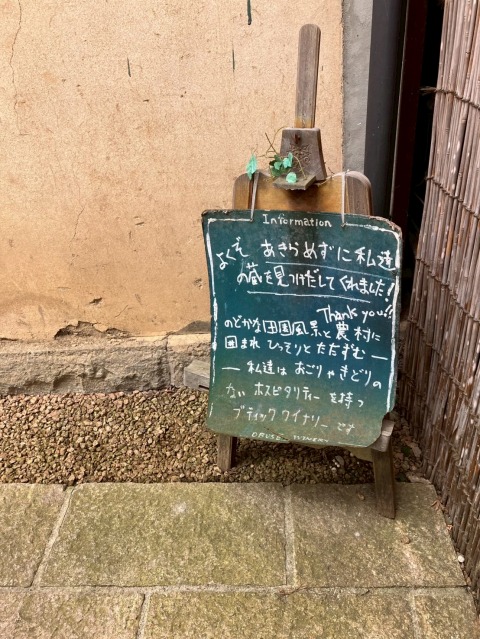 Information
よくぞ あきらめずに私達
の蔵を見つけだしてくれました!
Thank you!!
のどかな田園風景と農村に
囲まれ ひっそりとたたずむ ―
― 私達は おごりやきどりの
ない ホスピタリティーを持つ
ブティックワイナリーです
OBUSE WINERY